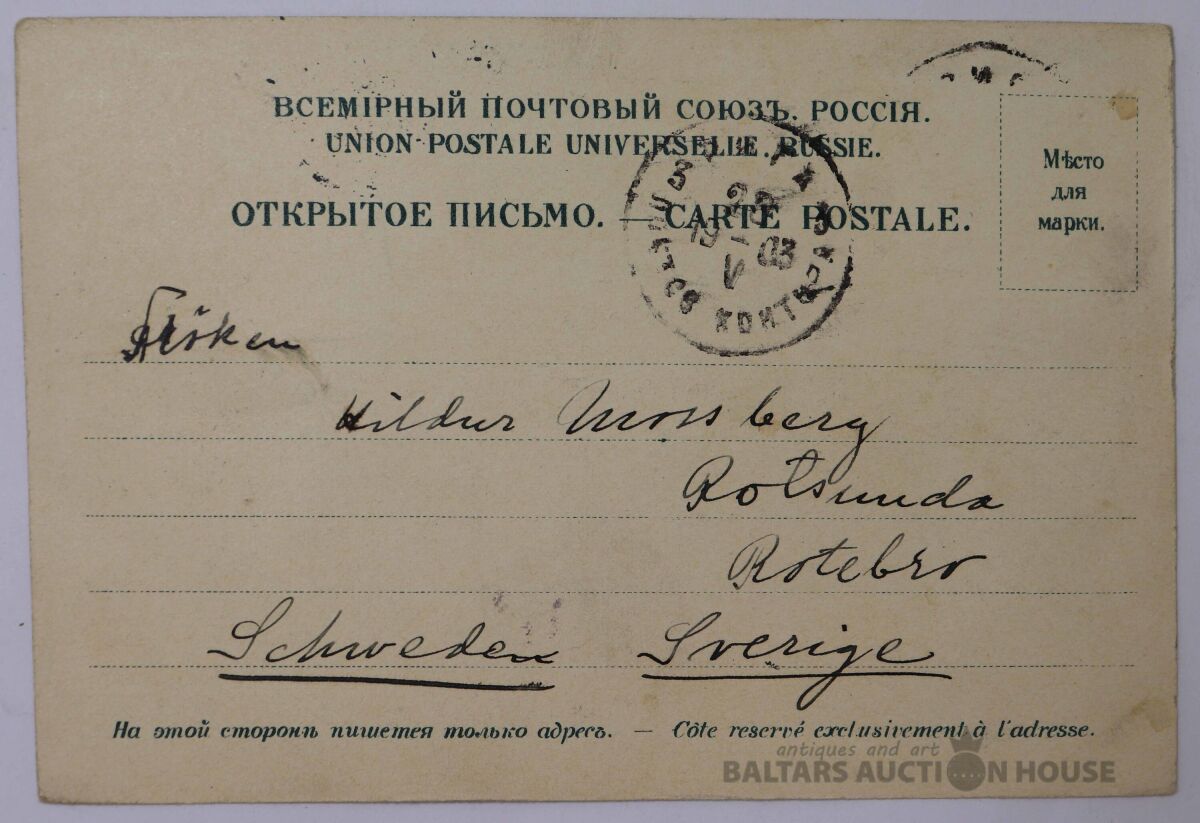 ВСЕМІРНЫЙ ПОЧТОВЫЙ СОЮЗЪ. РОССІЯ.
UNION POSTALE UNIVERSELLE. RUSSIE.
ОТКРЫТОЕ ПИСЬМО. — CARTE POSTALE.
Мѣсто
для
марки.
22
19 V 03
Fröken
Hildur Mossberg
Rotsunda
Rotebro
Schweden Sverige
На этой сторонѣ пишется только адресъ. — Côte reservé exclusivement à l'adresse.
antiques and art
BALTARS AUCTION HOUSE